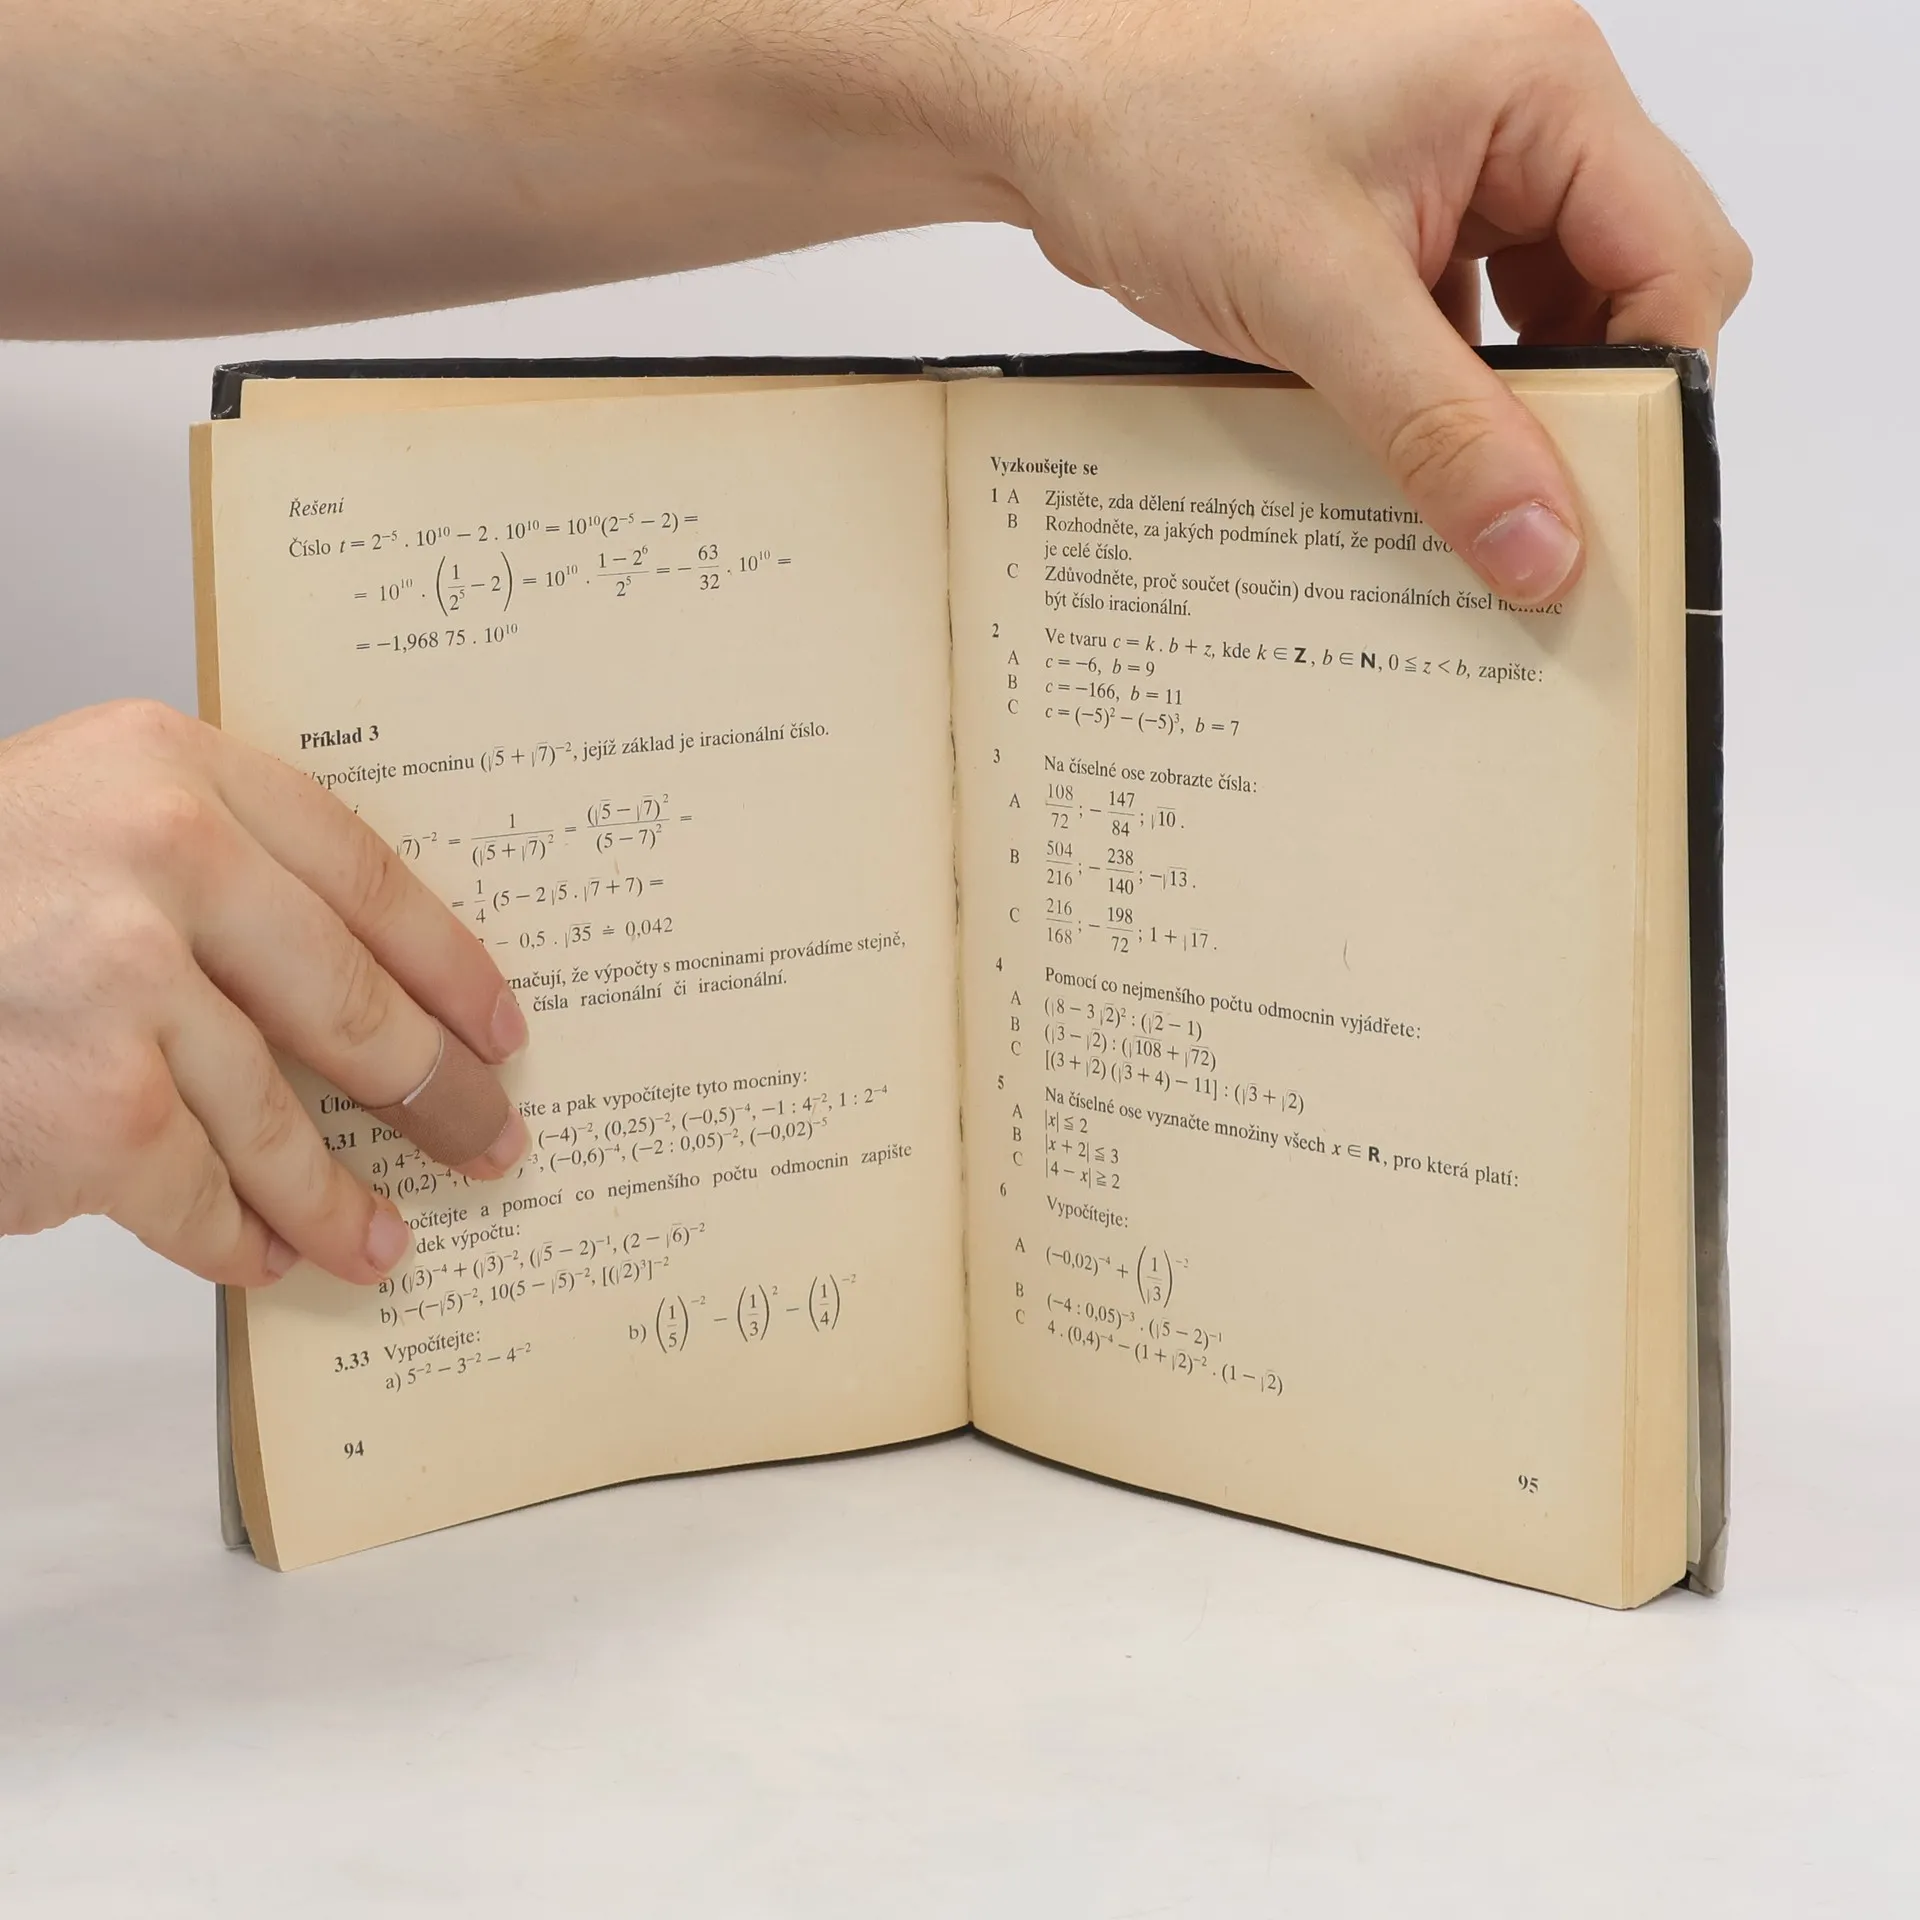 Řešení
Číslo t = 2⁻⁵ . 10¹⁰ − 2 . 10¹⁰ = 10¹⁰(2⁻⁵ − 2) =
= 10¹⁰ . (1/2⁵ − 2) = 10¹⁰ . (1 − 2⁶)/2⁵ = − 63/32 . 10¹⁰ =
= −1,968 75 . 10¹⁰
Příklad 3
Vypočítejte mocninu (√5 + √7)⁻², jejíž základ je iracionální číslo.
√7)⁻² = 1/(√5 + √7)² = (√5 − √7)²/(5 − 7)² =
= 1/4 (5 − 2√5 . √7 + 7) =
− 0,5 . √35 ≐ 0,042
značují, že výpočty s mocninami provádíme stejně,
čísla racionální či iracionální.
3.31 ište a pak vypočítejte tyto mocniny:
a) 4⁻², (−4)⁻², (0,25)⁻², (−0,5)⁻⁴, −1 : 4⁻², 1 : 2⁻⁴
b) (0,2)⁻⁴, ( )⁻³, (−0,6)⁻⁴, (−2 : 0,05)⁻², (−0,02)⁻⁵
počítejte a pomocí co nejmenšího počtu odmocnin zapište
dek výpočtu:
a) (√3)⁻⁴ + (√3)⁻², (√5 − 2)⁻¹, (2 − √6)⁻²
b) −(−√5)⁻², 10(5 − √5)⁻², [(√2)³]⁻²
3.33 Vypočítejte:
a) 5⁻² − 3⁻² − 4⁻² b) (1/5)⁻² − (1/3)² − (1/4)⁻²
94
Vyzkoušejte se
1 A Zjistěte, zda dělení reálných čísel je komutativní.
B Rozhodněte, za jakých podmínek platí, že podíl dvo
je celé číslo.
C Zdůvodněte, proč součet (součin) dvou racionálních čísel nemůže
být číslo iracionální.
2 Ve tvaru c = k . b + z, kde k ∈ Z, b ∈ N, 0 ≦ z < b, zapište:
A c = −6, b = 9
B c = −166, b = 11
C c = (−5)² − (−5)³, b = 7
3 Na číselné ose zobrazte čísla:
A 108/72 ; − 147/84 ; √10 .
B 504/216 ; − 238/140 ; −√13 .
C 216/168 ; − 198/72 ; 1 + √17 .
4 Pomocí co nejmenšího počtu odmocnin vyjádřete:
A (√8 − 3√2)² : (√2 − 1)
B (√3 − √2) : (√108 + √72)
C [(3 + √2) (√3 + 4) − 11] : (√3 + √2)
5 Na číselné ose vyznačte množiny všech x ∈ R, pro která platí:
A |x| ≦ 2
B |x + 2| ≦ 3
C |4 − x| ≧ 2
6 Vypočítejte:
A (−0,02)⁻⁴ + (1/√3)⁻²
B (−4 : 0,05)⁻³ . (√5 − 2)⁻¹
C 4 . (0,4)⁻⁴ − (1 + √2)⁻² . (1 − √2)
95